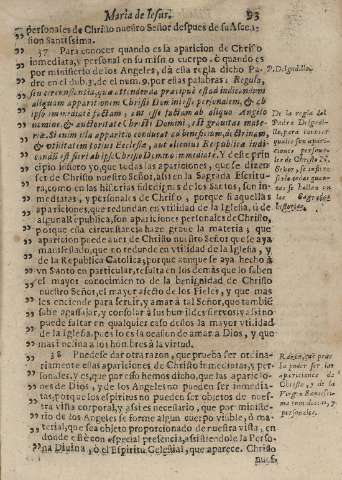 Maria de Iesus. 93
personales de Christo nuestro Señor despues de su Ascen-
sion Santissima.
37 Para conocer quando es la aparicion de Christo
inmediata, y personal en su mismo cuerpo, ò quando es
por ministerio de los Angeles, dà esta regla dicho Pa-
P. Delgadillo.
dre en el dub. 3. de el num. 9. por estas palabras: Regula,
seu circunstantia, qua attendenda præcipuè est ad indicandum
aliquam apparitionem Christi Domini esse personalem, & ab
ipso immediatè factam, aut esse factam ab aliquo Angelo
nomine, & auctoritate Christi Domini, est gravitas mate-
ria. Si enim illa apparitio conducat ad beneficium, doctrinam,
& utilitatem totius Ecclesiæ, aut alicuius Republicæ indi-
candũ est fieri ab ipso Christo Domino immediatè. Y de este prin-
cipio infiero yo, que todas las apariciones, que se dizen
ser de Christo nuestro Señor, assi en la Sagrada Escritu-
ra, como en las historias fidedignas de los Santos, son in-
mediatas, y personales de Christo, porque si aquellas
apariciones, que redundan en vtilidad de la Iglesia, ù de
alguna Republica, son apariciones personales de Christo,
porque esta circunstancia haze grave la materia; que
aparicion puede aver de Christo nuestro Señor que se aya
manifestado, que no redunde en vtilidad de la Iglesia, y
de la Republica Catolica; porque aunque se aya hecho à
vn Santo en particular, resulta en los demàs que lo saben
el mayor conocimiento de la benignidad de Christo
nuestro Señor, el mayor afecto de los Fieles, y que mas
les enciende para servir, y amar à tal Señor, que tambien
sabe agassajar, y consolar à sus humildes siervos; y assi no
puede faltar en qualquier caso destos la mayor vtilidad
de la Iglesia, pues lo es la ocasion de amar à Dios, y que
mas inclina à los hombres à la virtud.
De la regla del
Padre Delgadi-
llo, para conocer
quales son apari-
ciones personales
de Christo N.
Señor, se infiere
serlo todas quan-
tas se hallan en
las Sagradas
historias.
38 Puedese dar otra razon, que prueba ser ordina-
riamente estas apariciones de Christo inmediatas, y per-
sonales; y es, que por esso hemos dicho, que las aparicio-
nes de Dios, y de los Angeles no pueden ser inmedia-
tas, porque los espiritus no pueden ser objetos de nues-
tra vista corporal, y assi es necesario, que por ministe-
rio de los Angeles se forme algun cuerpo visible, ò ma-
terial, que sea objeto proporcionado de nuestra vista, en
donde estè con especial presencia, assistiendole la Perso-
na Divina, ò el Espiritu Celestial, que aparece. Christo
Razon, que prue-
ba poder ser las
apariciones de
Christo, y de la
Virgen Santissi-
ma inmediatas, y
personales.